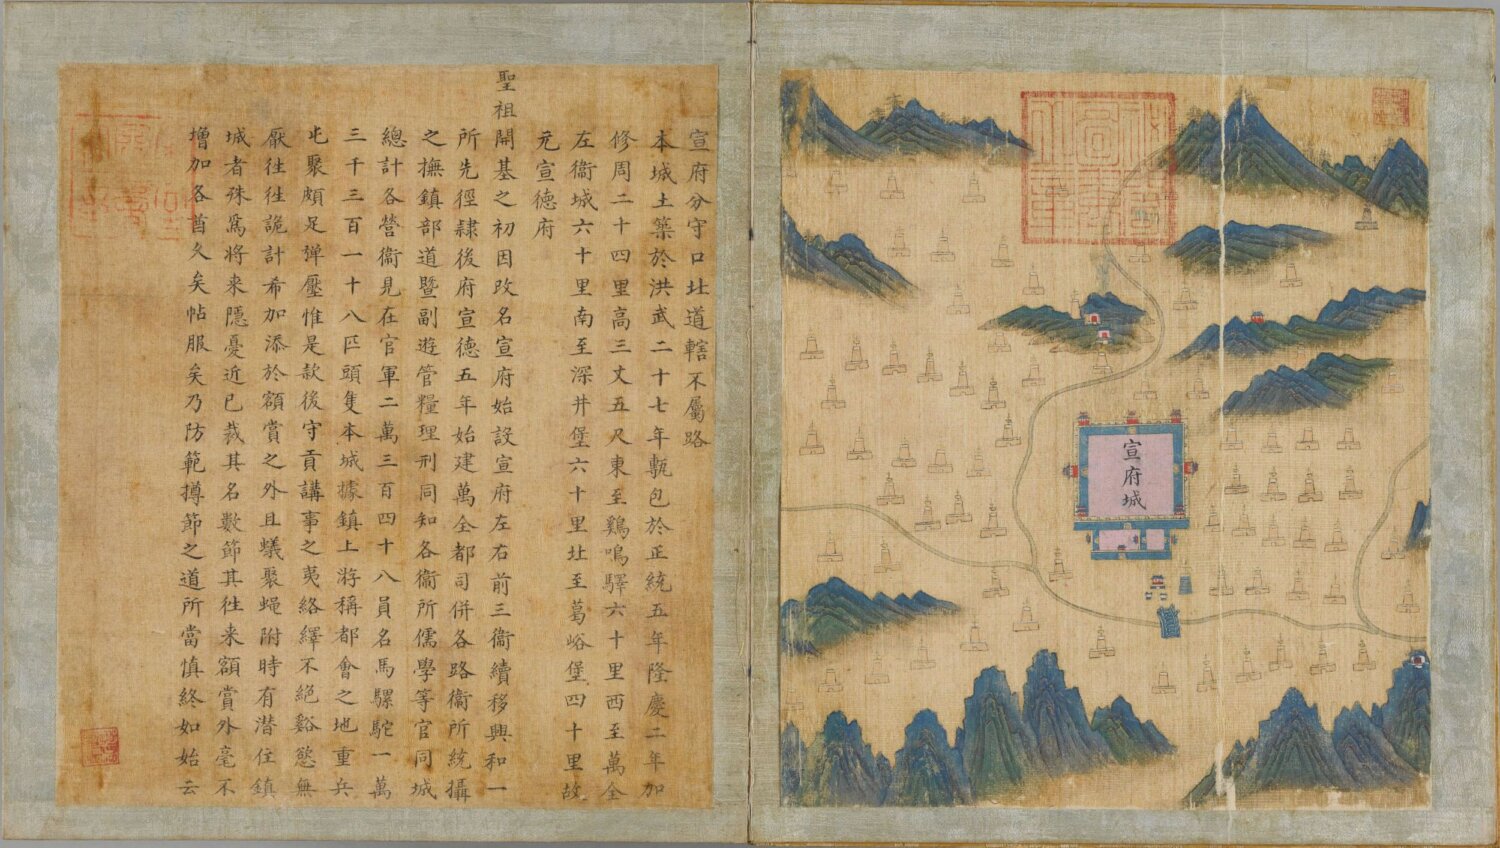 宣府分守口北道轄不屬路
本城土築於洪武二十七年甎包於正統五年隆慶二年加
修周二十四里高三丈五尺東至鷄鳴驛六十里西至萬全
左衞城六十里南至深井堡六十里北至葛峪堡四十里故
元宣德府
聖祖開基之初因改名宣府始設宣府左右前三衞續移興和一
所先徑隸後府宣德五年始建萬全都司併各路衞所統攝
之撫鎮部道暨副遊管糧理刑同知各衞所儒學等官同城
總計各營衞見在官軍二萬三百四十八員名馬騾駝一萬
三千三百一十八匹頭隻本城據鎮上游稱都會之地重兵
屯聚頗足彈壓惟是款後守貢講事之夷絡繹不絕谿慾無
厭往往詭計希加添於額賞之外且蟻聚蠅附時有潛住鎮
城者殊爲將來隱憂近已裁其名數節其往來額賞外毫不
增加各酋久矣帖服矣乃防範撙節之道所當慎終如始云
宣府城